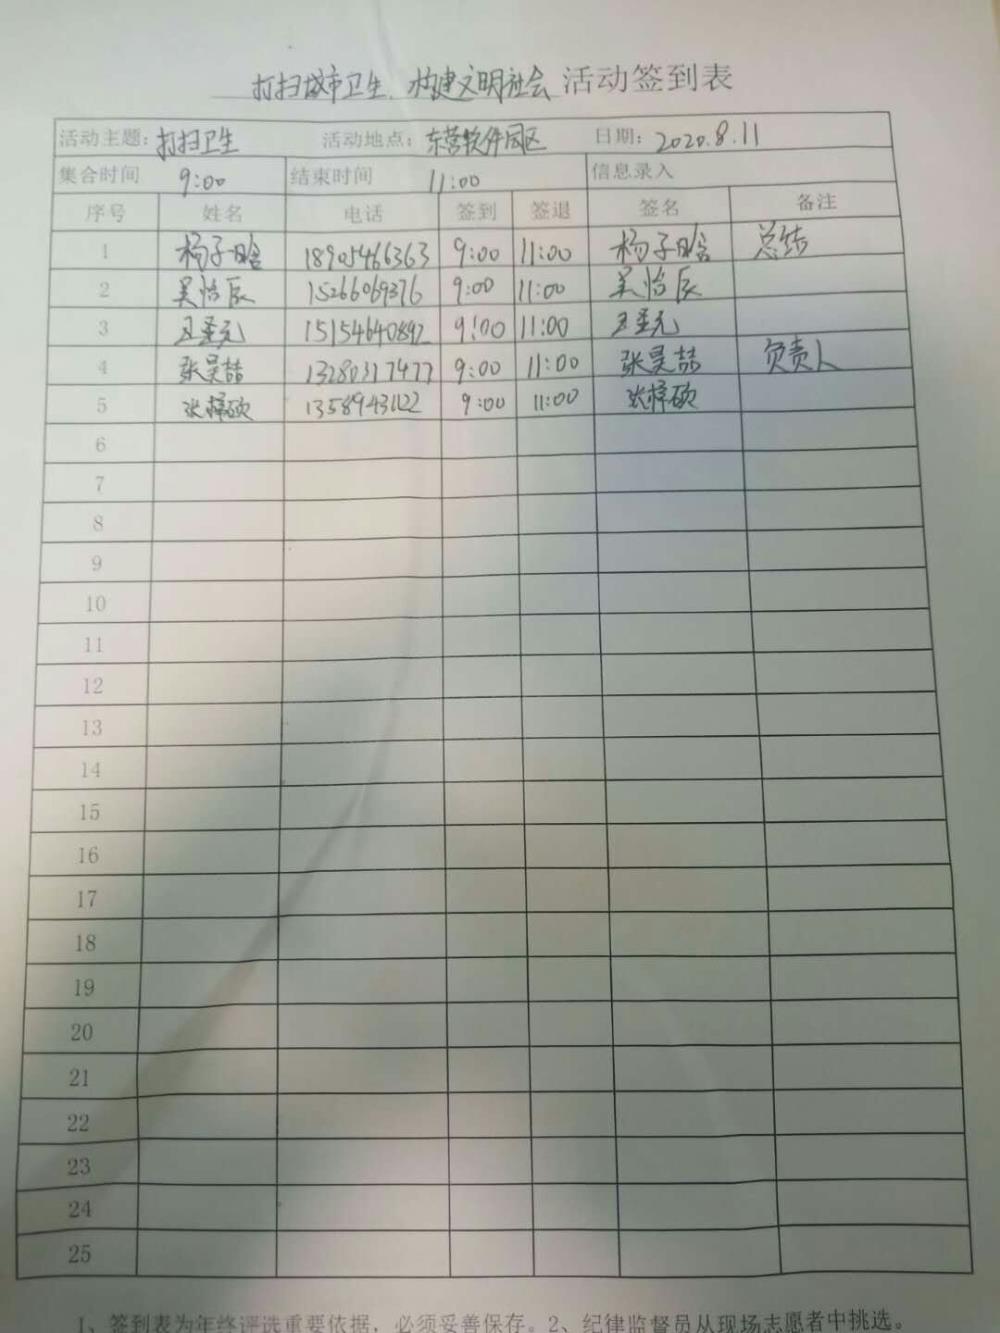 打扫城市卫生、构建文明社会 活动签到表
活动主题: 打扫卫生 活动地点: 东营软件园区 日期: 2020.8.11
集合时间 9:00 结束时间 11:00 信息录入
序号 姓名 电话 签到 签退 签名 备注
1 杨子晗 18905466363 9:00 11:00 杨子晗 总结
2 吴怡辰 15266069376 9:00 11:00 吴怡辰
3 15154640892 9:00 11:00
4 张昊喆 13280317477 9:00 11:00 张昊喆 负责人
5 张梓硕 13589431122 9:00 11:00 张梓硕
6
7
8
9
10
11
12
13
14
15
16
17
18
19
20
21
22
23
24
25
1、签到表为年终评选重要依据，必须妥善保存。2、纪律监督员从现场志愿者中挑选。